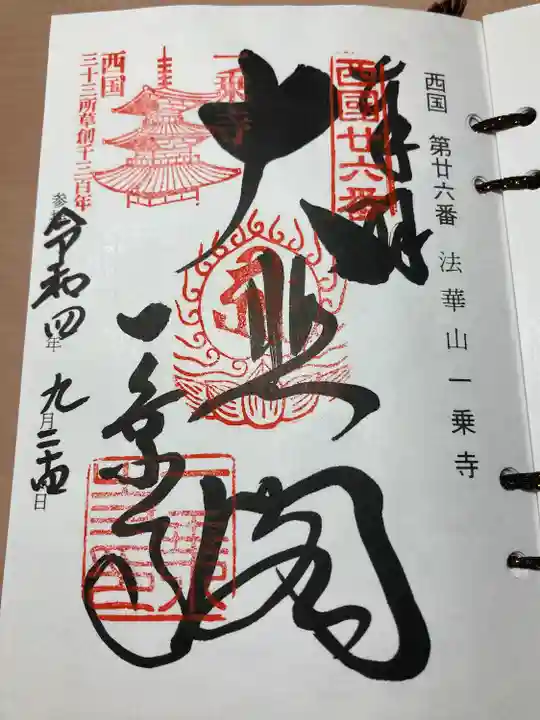 西国 第廿六番 法華山一乗寺
奉拝
西國廿六番
大悲閣
一乗寺
一乗寺
西国
三十三所草創千三百年
令和四年九月二十四日